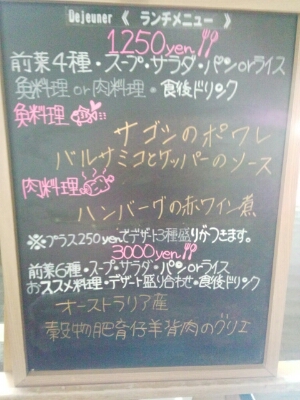 Dejeuner 《 ランチメニュー 》
1250yen
前菜4種・スープ・サラダ・パンorライス
魚料理 or 肉料理・食後ドリンク
魚料理
サゴシのポワレ
バルサミコとケッパーのソース
肉料理
ハンバーグの赤ワイン煮
※プラス250yenでデザート3種盛りがつきます。
3000yen
前菜6種・スープ・サラダ・パンorライス
おススメ料理・デザート盛り合わせ・食後ドリンク
オーストラリア産
穀物肥育仔羊背肉のグリエ